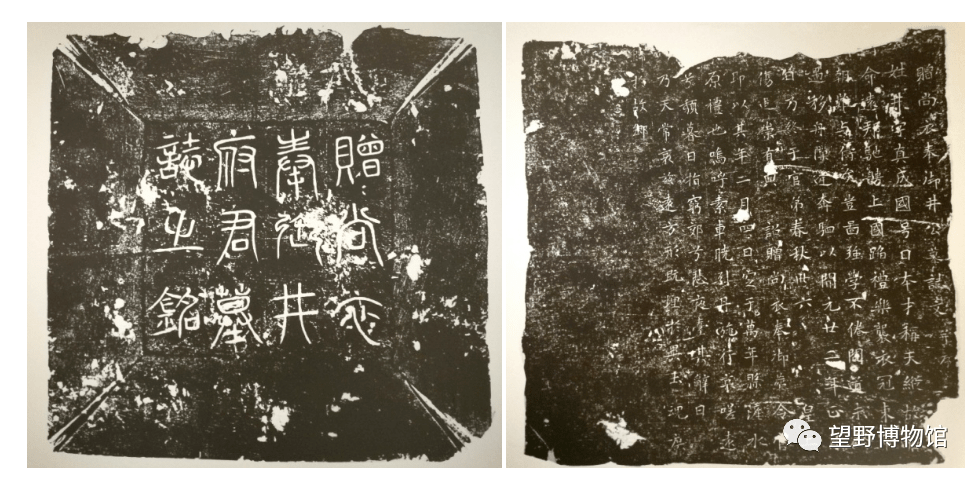 贈尚衣
奉御井
府君墓
誌之銘
贈尚衣奉御井公墓誌文
姓井字真成國號日本才稱天縱故
命遠邦馳騁上國蹈禮樂襲衣冠束
朝難與儔矣豈圖強學不倦聞道未
遇移舟隙逢奔駟以開元廿二年正
終于官弟春秋卅六皇
傷追崇有典詔贈尚衣奉御葬令
即以其年二月四日窆于萬年縣滻水
原禮也嗚呼素車曉引丹旐行哀嗟遠
兮頹暮日指窮郊兮悲夜臺其辭曰
乃天常哀茲遠方形既埋于異土魂庶
故鄉
望野博物馆